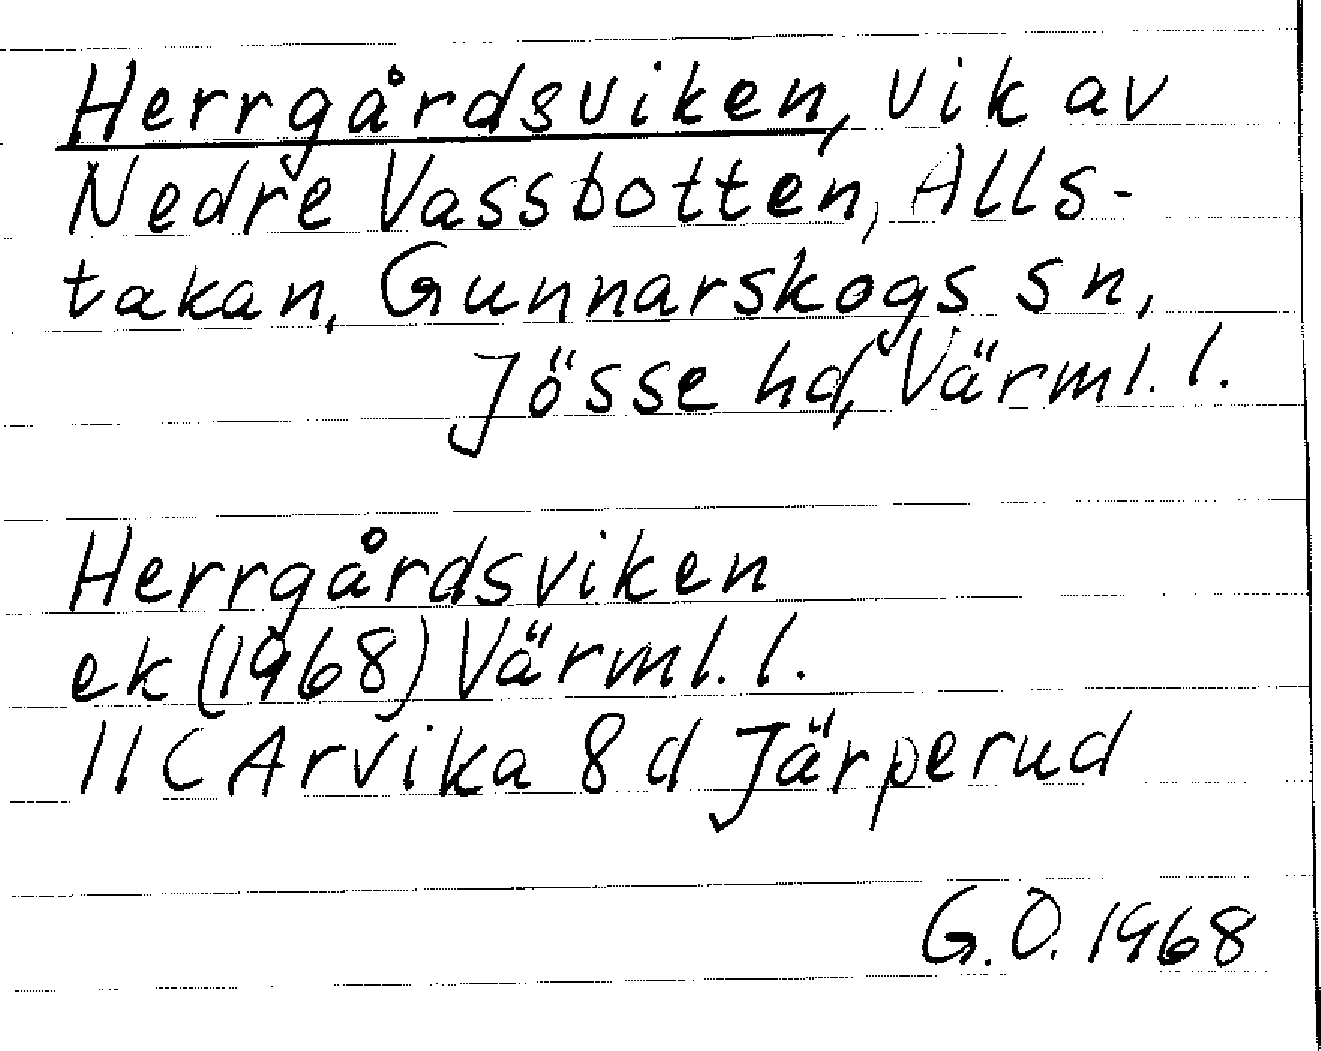 Herrgårdsviken, vik av
Nedre Vassbotten, Alls-
takan, Gunnarskogs sn,
Jösse hd, Värml. l.
Herrgårdsviken
ek (1968) Värml. l.
11 C Arvika 8 d Järperud
G.O. 1968